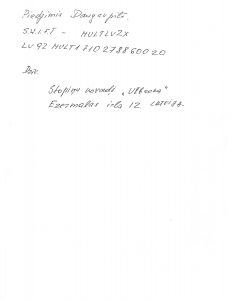 Piedzimis Daugavpils.
S.W.I.F.T - MULTLV2X
LV92 MULT1710278860020
Dzīv.
Stopiņu novads, „Ulbroka"
Ezermalas iela 12 LATVIJA.